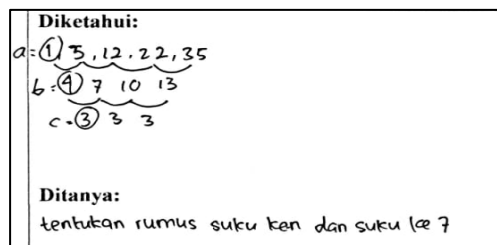 Diketahui:
a = 1, 5, 12, 22, 35
b = 4 7 10 13
c = 3 3 3
Ditanya:
tentukan rumus suku ken dan suku ke 7